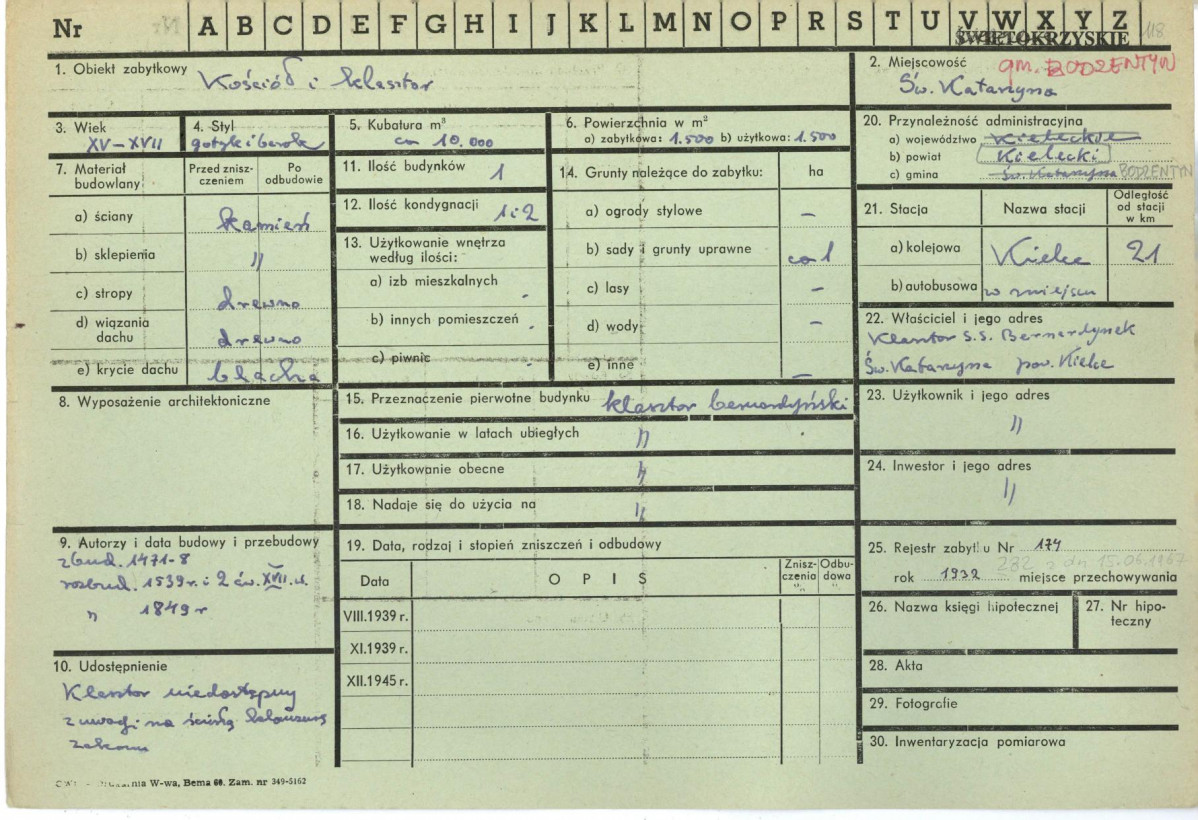 Nr A B C D E F G H I J K L M N O P R S T U V W X Y Z
ŚWIĘTOKRZYSKIE 118
1. Obiekt zabytkowy Kościół i klasztor
2. Miejscowość gm. BODZENTYN
Św. Katarzyna
3. Wiek
XV–XVII
4. Styl
gotyk i barok
5. Kubatura m³
ca 10.000
6. Powierzchnia w m²
a) zabytkowa: 1.500 b) użytkowa: 1.500
20. Przynależność administracyjna
a) województwo Kieleckie
b) powiat Kielecki
c) gmina Św. Katarzyna BODZENTYN
7. Materiał budowlany
Przed zniszczeniem
Po odbudowie
a) ściany kamień
b) sklepienia "
c) stropy drewno
d) wiązania dachu drewno
e) krycie dachu blacha
11. Ilość budynków 1
12. Ilość kondygnacji 1 i 2
13. Użytkowanie wnętrza
według ilości:
a) izb mieszkalnych -
b) innych pomieszczeń -
c) piwnic -
14. Grunty należące do zabytku: ha
a) ogrody stylowe –
b) sady i grunty uprawne ca 1
c) lasy –
d) wody –
e) inne –
21. Stacja Nazwa stacji Odległość od stacji w km
a) kolejowa Kielce 21
b) autobusowa w miejscu
22. Właściciel i jego adres
Klasztor S.S. Bernardynek
Św. Katarzyna pow. Kielce
8. Wyposażenie architektoniczne
15. Przeznaczenie pierwotne budynku klasztor bernardyński
16. Użytkowanie w latach ubiegłych "
17. Użytkowanie obecne "
18. Nadaje się do użycia na "
23. Użytkownik i jego adres
"
24. Inwestor i jego adres
"
9. Autorzy i data budowy i przebudowy
zbud. 1471-8
rozbud. 1539 r. i 2 ćw. XVII. w.
" 1849 r
10. Udostępnienie
Klasztor niedostępny
z uwagi na ścisłą klauzurę
zakonu
19. Data, rodzaj i stopień zniszczeń i odbudowy
Data OPIS Zniszczenia % Odbudowa %
VIII.1939 r.
XI.1939 r.
XII.1945 r.
25. Rejestr zabytku Nr 174
282 z dn 15.06.1967
rok 1932 miejsce przechowywania
26. Nazwa księgi hipotecznej
27. Nr hipoteczny
28. Akta
29. Fotografie
30. Inwentaryzacja pomiarowa
W-wa, Bema 60. Zam. nr 349-5162